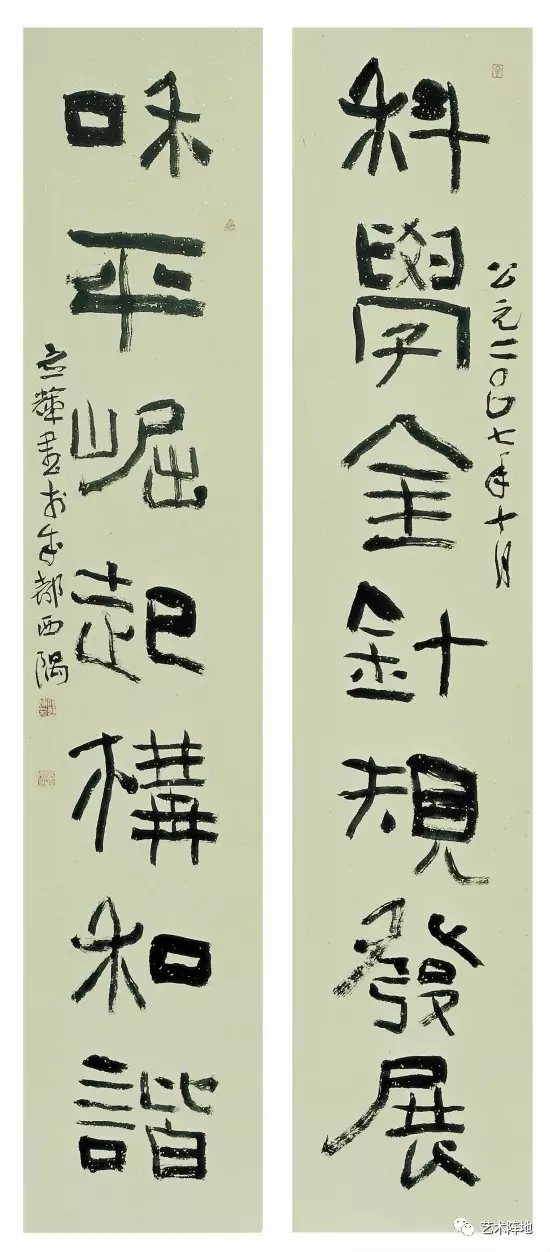 科學金針規發展
公元二〇〇七年十月
咊平崛起構和諧
应輝書於成都西隅
艺术阵地